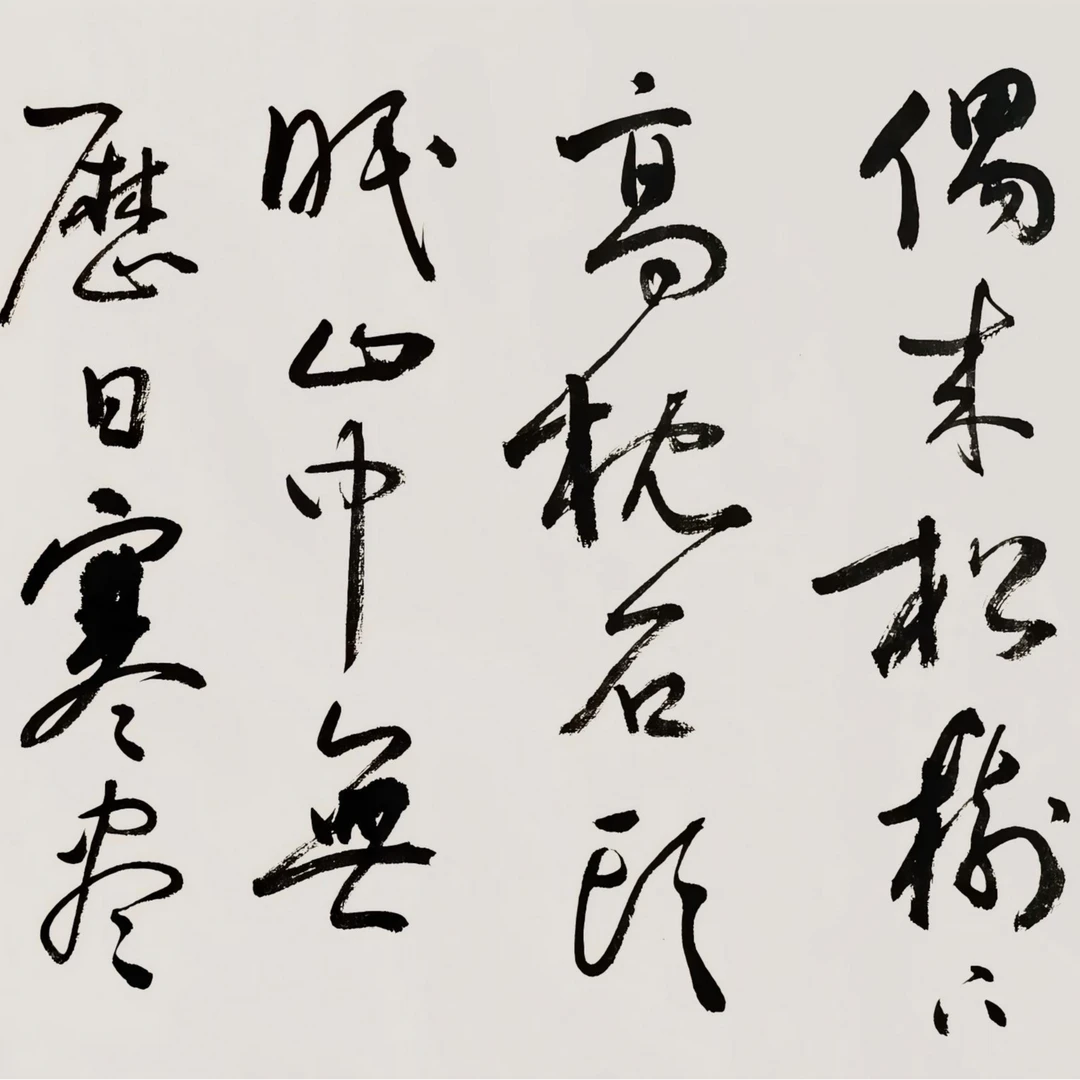 偶来松樹下
高枕石頭
眠山中無
歷日寒尽